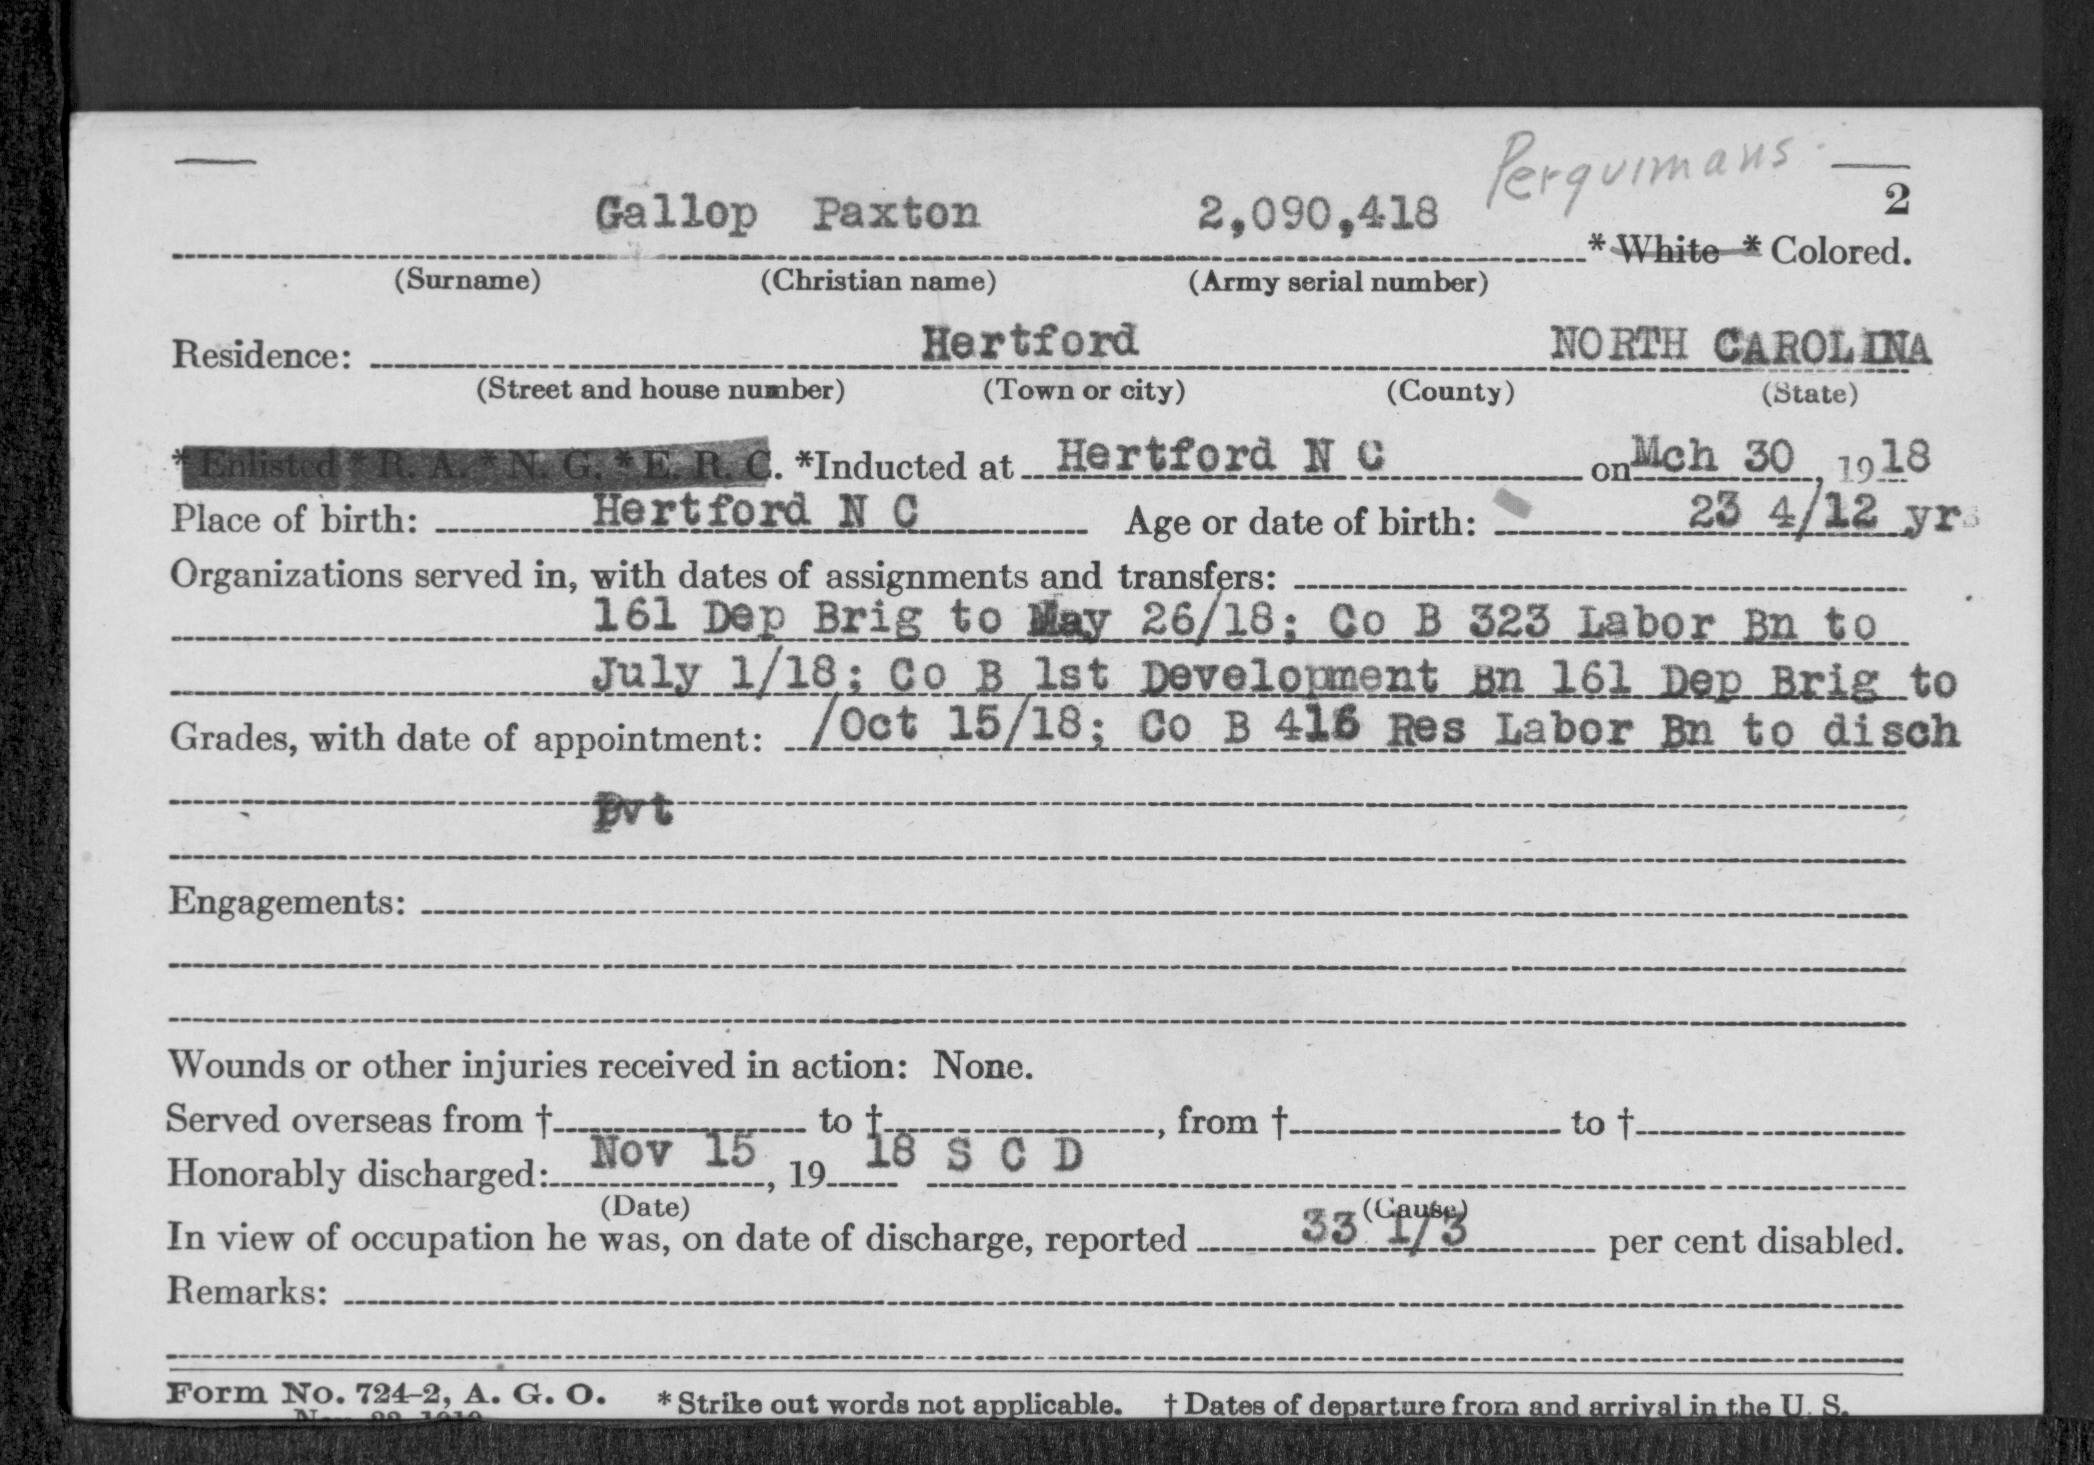 Perquimans
2
Gallop Paxton 2,090,418 * White * Colored.
(Surname) (Christian name) (Army serial number)
Residence: Hertford NORTH CAROLINA
(Street and house number) (Town or city) (County) (State)
* Enlisted * R. A. * N. G. * E. R. C. *Inducted at Hertford N C on Mch 30, 1918
Place of birth: Hertford N C Age or date of birth: 23 4/12 yrs
Organizations served in, with dates of assignments and transfers:
161 Dep Brig to May 26/18; Co B 323 Labor Bn to
July 1/18; Co B 1st Development Bn 161 Dep Brig to
Grades, with date of appointment: /Oct 15/18; Co B 416 Res Labor Bn to disch
Pvt
Engagements:
Wounds or other injuries received in action: None.
Served overseas from † to †, from † to †
Honorably discharged: Nov 15, 1918 S C D
(Date) (Cause)
In view of occupation he was, on date of discharge, reported 33 1/3 per cent disabled.
Remarks:
Form No. 724-2, A. G. O. * Strike out words not applicable. † Dates of departure from and arrival in the U. S.